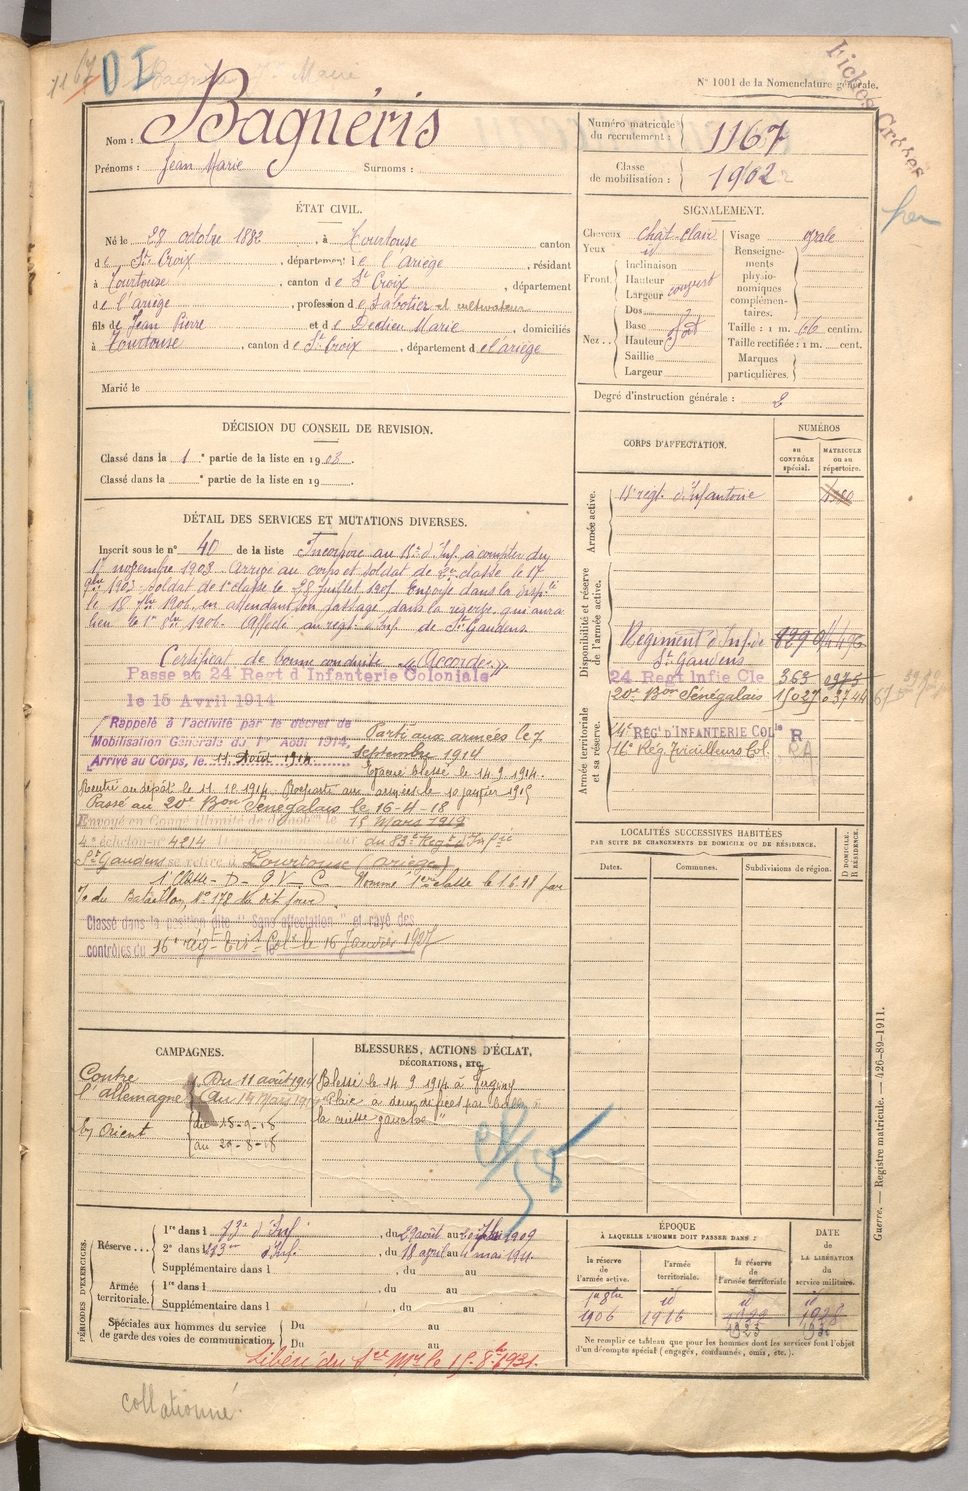 1167
DI
N° 1001 de la Nomenclature générale.
Fiches Créées
Nom : Bagnéris
Prénoms : Jean Marie Surnoms :
Numéro matricule du recrutement : 1167
Classe de mobilisation : 1902
ÉTAT CIVIL.
Né le 28 octobre 1882, à Tourtouse canton
de Ste Croix, département de l'ariège, résidant
à Tourtouse, canton de Ste Croix, département
de l'ariège, profession de Sabotier et cultivateur
fils de Jean Pierre et de Dedieu Marie, domiciliés
à Tourtouse, canton de Ste Croix, département de l'ariège
Marié le
SIGNALEMENT.
Cheveux chat-clair
Yeux id
Front. Inclinaison
Hauteur
Largeur couvert
Nez.. Dos
Base
Hauteur fort
Saillie
Largeur
Visage ovale
Renseignements physionomiques complémentaires.
Taille : 1 m. 66 centim.
Taille rectifiée : 1 m. cent.
Marques particulières.
Degré d'instruction générale : 2
DÉCISION DU CONSEIL DE REVISION.
Classé dans la 1e partie de la liste en 1903.
Classé dans la e partie de la liste en 19 .
DÉTAIL DES SERVICES ET MUTATIONS DIVERSES.
Inscrit sous le n° 40 de la liste Incorporé au d'Inf. à compter du
17 novembre 1903. Arrivé au corps et soldat de 2e classe le 17
9bre 1903. Soldat de 1e classe le 28 juillet 1905. Envoyé dans la dispté
le 18 7bre 1906, en attendant son passage dans la réserve qui aura
lieu le 1er 8bre 1906. Affecté au régt. d'Inf. de St Gaudens.
Certificat de bonne conduite "Accordé"
Passé au 24 Regt d'Infanterie Coloniale
le 15 Avril 1914
Rappelé à l'activité par le décret de
Mobilisation Générale du 1er Août 1914,
Arrivé au Corps, le 11 Août 1914
Parti aux armées le 7
septembre 1914
Evacué blessé le 14.9.1914.
Rentré au dépôt le 11.10.1914. Reparti aux armées le 10 janvier 1915
Passé au 20e Bon Sénégalais le 16-4-18
Envoyé en Congé illimité de démob le 15 Mars 1919
4e échelon n° 4214 du 83e Regt d'Infie
St Gaudens se retire à Tourtouse (Ariège)
1e Classe - D - G.V - C. Nommé 1ere classe le 1.6.18 par
O. du Bataillon N° 178 du dit jour.
Classé dans la position dite "Sans affectation" et rayé des
contrôles du 16e régt Colx le 16 Janvier 1927
CORPS D'AFFECTATION.
NUMÉROS
au CONTRÔLE spécial.
MATRICULE ou au répertoire.
Armée active.
régt. d'Infanterie
Disponibilité et réserve de l'armée active.
Régiment d'Inf. de St Gaudens 829
24 Regt Infie Cle 363
20e Bon Sénégalais
Armée territoriale et sa réserve.
RÉGt D'INFANTERIE COLle R
16e Rég. Tirailleurs Col. RA
LOCALITÉS SUCCESSIVES HABITÉES
PAR SUITE DE CHANGEMENTS DE DOMICILE OU DE RÉSIDENCE.
Dates. Communes. Subdivisions de région. D DOMICILE. R RÉSIDENCE.
CAMPAGNES.
Contre l'allemagne Du 11 août 1914
au 14 Mars 1919
En Orient du 15-9-18
au 29-8-18
BLESSURES, ACTIONS D'ÉCLAT,
DÉCORATIONS, ETC.
Blessé le 14.9.1914 à
"Plaie à deux orifices par balle à
la cuisse gauche."
PÉRIODES D'EXERCICES.
Réserve... 1re dans le d'Inf, du 29 août au 1909
2e dans d'Inf., du 18 avril au 4 mai 1911.
Supplémentaire dans l , du au
Armée territoriale. 1re dans l , du au
Supplémentaire dans l , du au
Spéciales aux hommes du service de garde des voies de communication. Du au
Du au
Libéré du Sce Mre le 15.8bre 1931.
ÉPOQUE
À LAQUELLE L'HOMME DOIT PASSER DANS :
la réserve de l'armée active. l'armée territoriale. la réserve de l'armée territoriale
DATE de LA LIBÉRATION du service militaire.
1er 8bre 1906
id 1916
id 1922
id 1928
Ne remplir ce tableau que pour les hommes dont les services font l'objet
d'un décompte spécial (engagés, condamnés, omis, etc.).
Guerre. — Registre matricule. — 426-89-1911.
collationné.